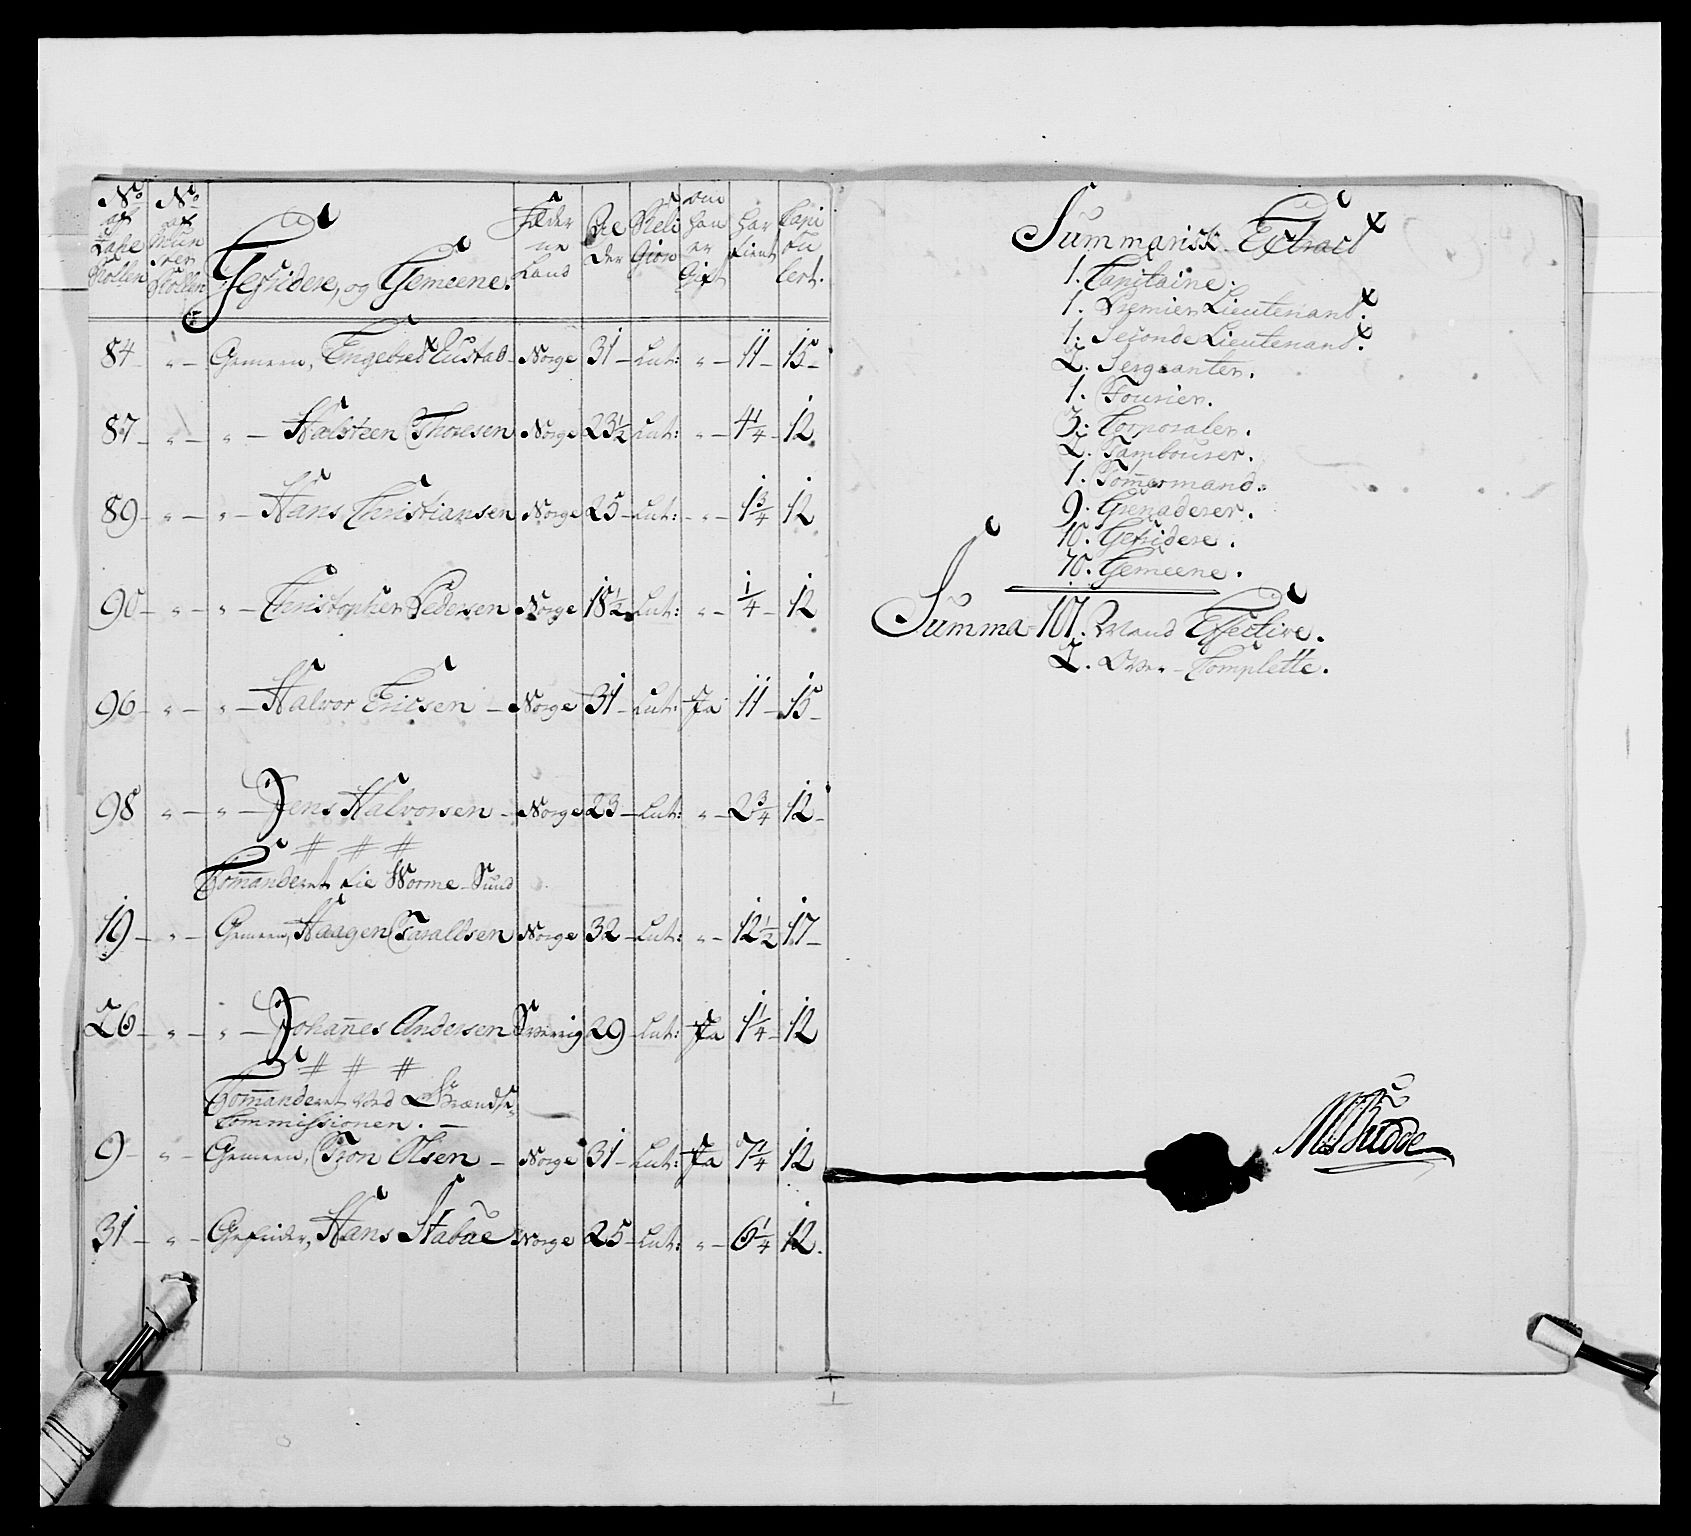 No af Lafte Rollen | No af Mun ster Rollen | Gefridere, og Gemeene. | Fæder ne Land | Al der | Reli gion | om han er Gift | har tient | Capi tu lert.
84 - " - Gemeen, Engebret Eustad - Norge 31 - Lut: " - 11 - 15 -
87 - " - " - Halsteen Thoresen Norge 23 1/2 Lut: " - 4 1/4 - 12
89 - " - " - Hans Christiansen Norge 25 - Lut: - " - 1 3/4 12
90 - " - " - Christopher Pedersen Norge 18 1/2 Lut: " - 1/4 - 12
96 - " - " - Halvor Ericsen - Norge 31 - Lut: Ja 11 - 15 -
98 " - " - Jens Halvorsen - Norge 23 - Lut: " - 2 3/4 12 -
Com̄anderet til Worme-Sund
19 - " - Gemeen, Haagen Taraldsen Norge 32 - Lut: " - 12 1/2 17 -
26 - " - " - Johan̄es Andersen Sverrig 29 - Lut: Ja 1 1/4 - 12
Com̄anderet ved Grændse
Commissionen. -
9 - " - Gemeen, Tron Olsen - Norge 31 - Lut: Ja 7 1/4 12
31 - " - Gefrider, Hans Stabue Norge 25 - Lut: " - 6 1/4 12.
Summarisk Extract
1. Capitaine.
1. Premier Lieutenant.
1. Seconde Lieutenant.
2. Sergeanter.
1. Fourier.
3. Corporaler.
2. Tambourer.
1. Tom̄ermand.
9. Grenaderer.
10. Gefridere.
70. Gemeene.
Summa - 101. Mand Effective.
2. Over - Complette.
Budde